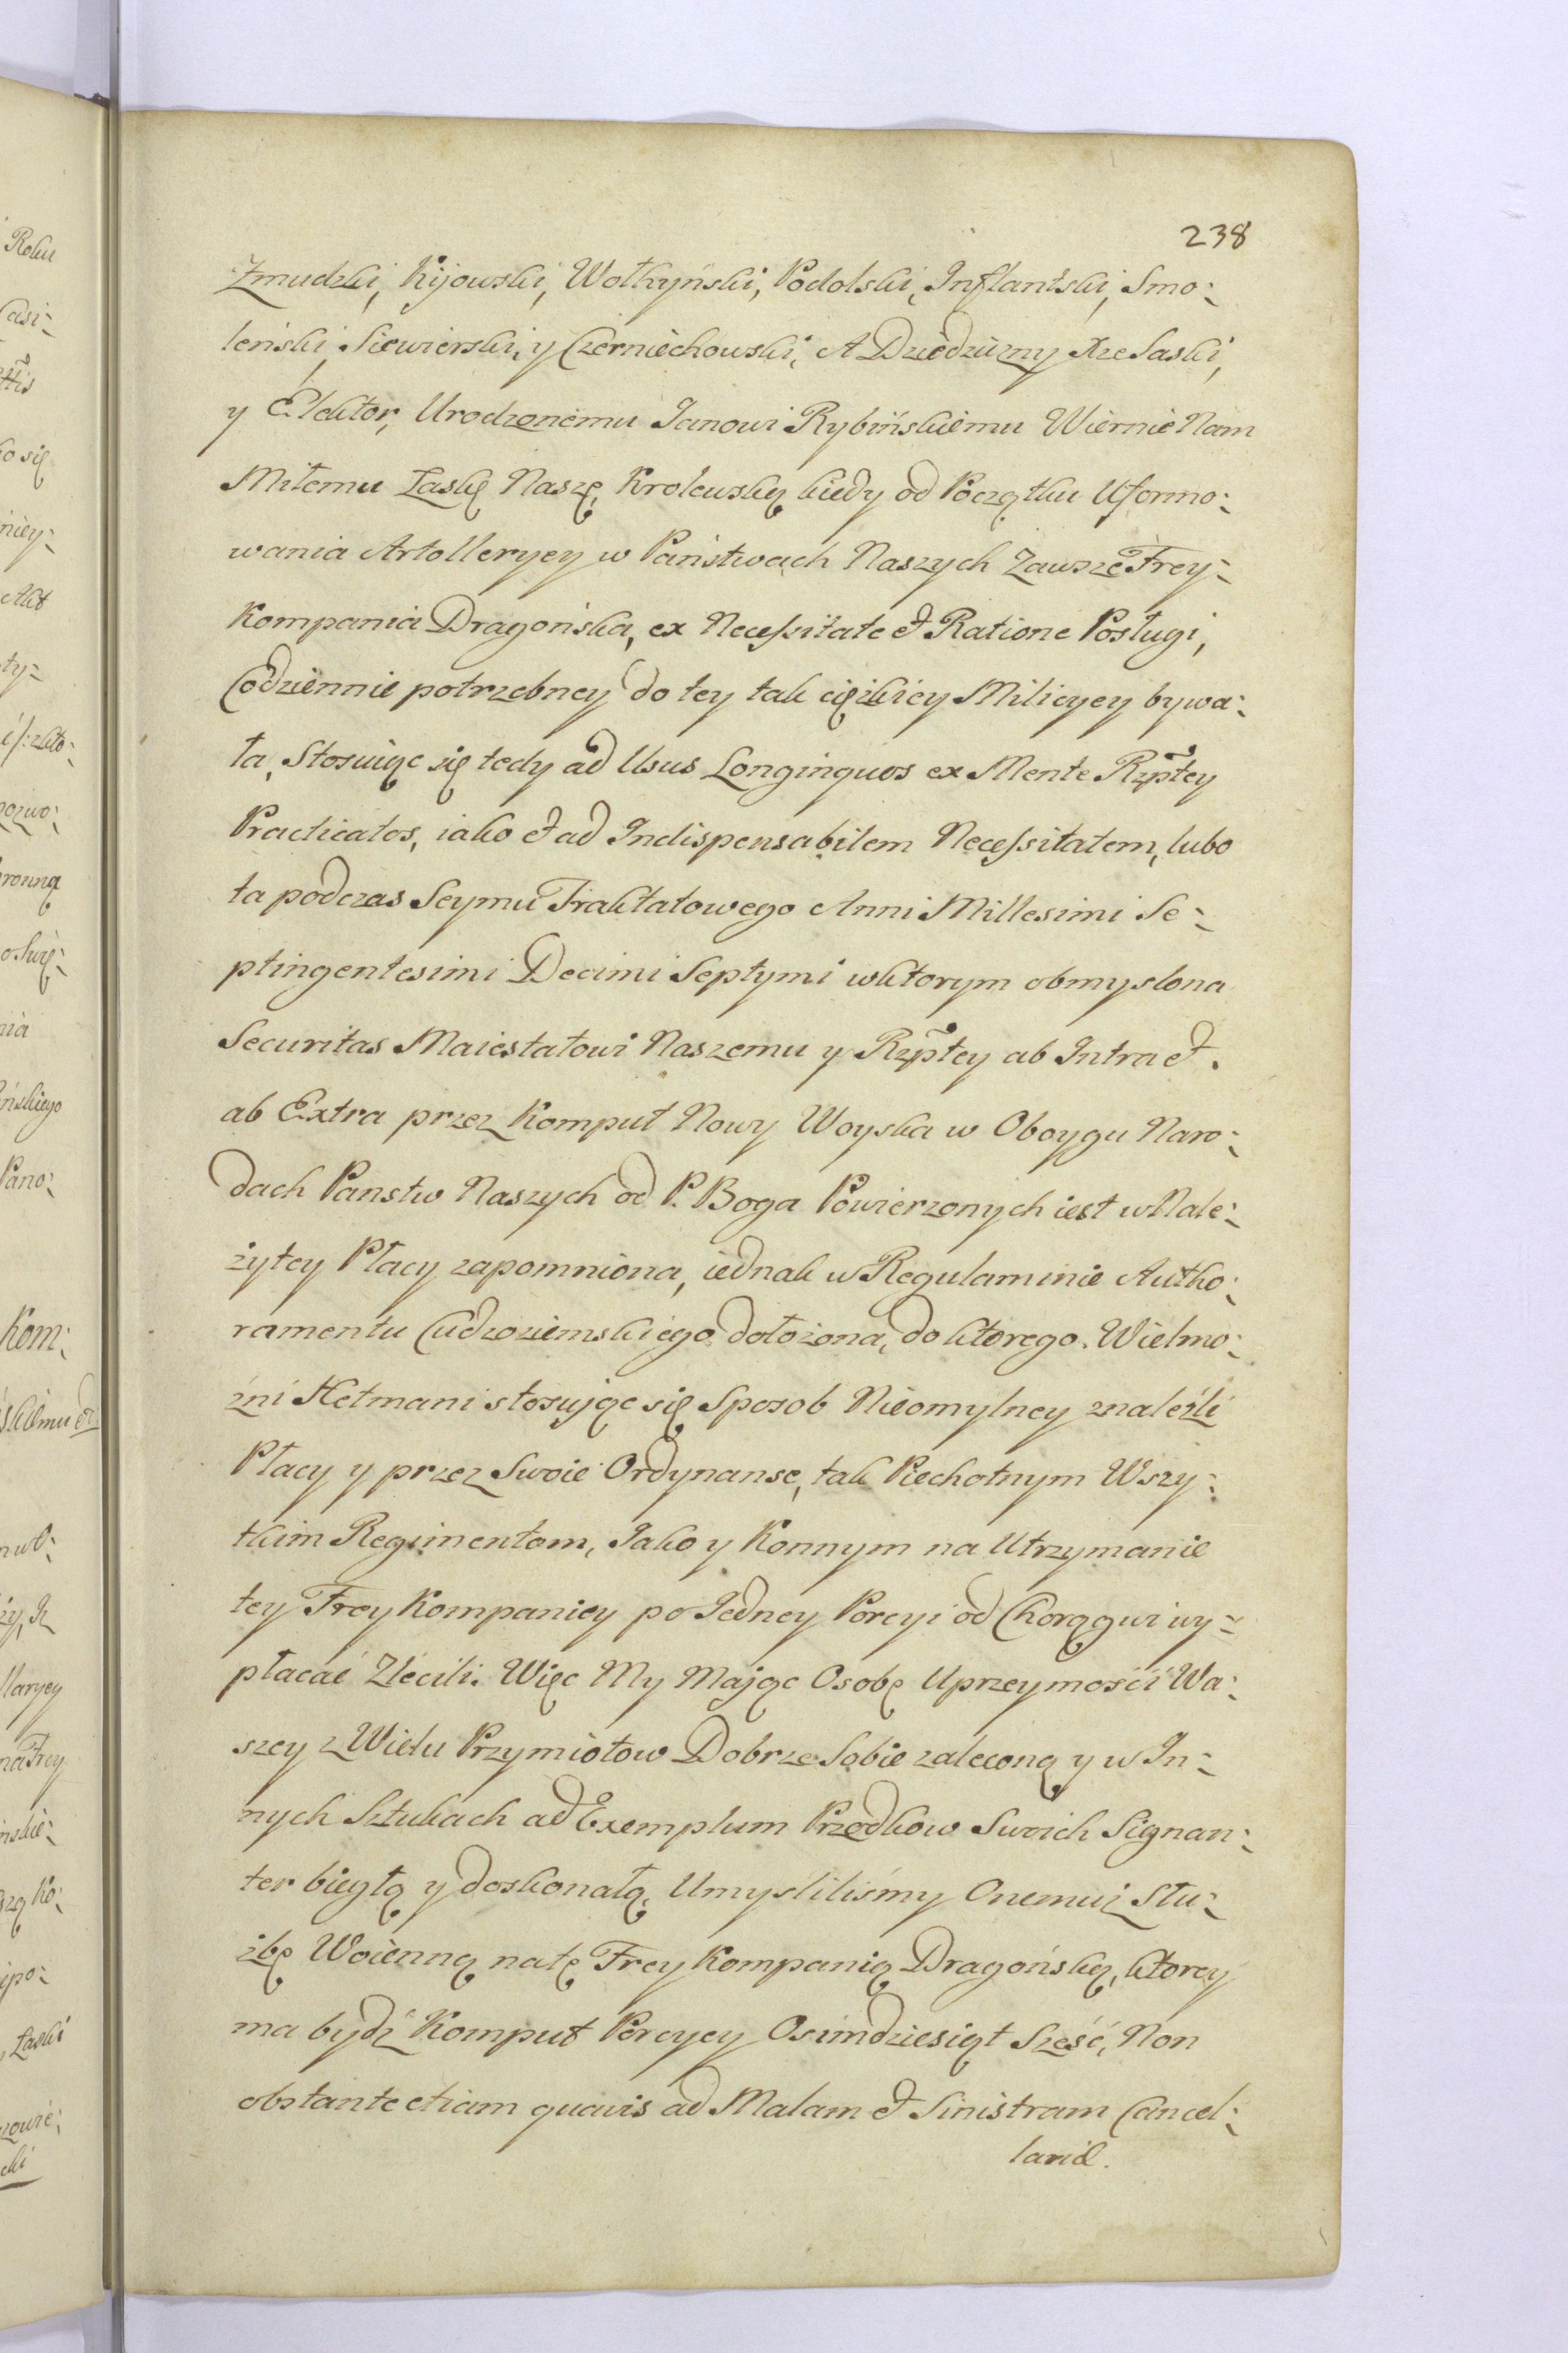 238
Żmudzki, Kijowski, Wołhyński, Podolski, Inflantski, Smo:
leński, Siewierski, y Czerniechowski, A Dziedziczny Xże Saski,
y Elektor, Urodzonemu Janowi Rybińskiemu Wiernie Nam
Miłemu Łaskę Naszę Krolewską kiedy od Początku Uformo:
wania Artolleryey w Państwach Naszych Zawsze Frey:
Kompania Dragońska, ex Necessitate et Ratione Posługi,
Codziennie potrzebney do tey tak ciężkiey Milicyey bywa:
ła, Stosuiąc się tedy ad Usus Longinquos ex Mente Rzptey
Practicatos, iako et ad Indispensabilem Necessitatem, lubo
ta podczas Seymu Traktatowego Anni Millesimi Se:
ptingentesimi Decimi Septymi wktorym obmyslona
Securitas Maiestatowi Naszemu y Rzptey ab Intra et
ab Extra przez Komput Nowy Woyska w Oboygu Naro:
dach Panstw Naszych od P. Boga Powierzonych iest w Nale:
żytey Płacy zapomniona, iednak w Regulaminie Autho:
ramentu Cudzoziemskiego dołożona, do ktorego Wielmo:
żni Hetmani stosując się Sposob Nieomylney znaleźli
Płacy y przez Swoie Ordynanse, tak Piechotnym Wszy:
tkim Regimentom, Jako y Konnym na Utrzymanie
tey Frey Kompaniey po Jedney Porcyi od Chorągwi wy:
płacać Zlecili. Więc My Mając Osobę Uprzeymości Wa:
szey z Wielu Przymiotow Dobrze Sobie zaleconą y w In:
nych Sztukach ad Exemplum Przodkow Swoich Signan:
ter biegłą y doskonałą, Umyśliliśmy Onemuż Słu:
żbę Woienną natę Frey Kompanią Dragońską, ktorey
ma bydź Komput Porcyey Osimdziesiąt Sześć, Non
obstante etiam quavis ad Malam et Sinistram Cancel:
lariæ.